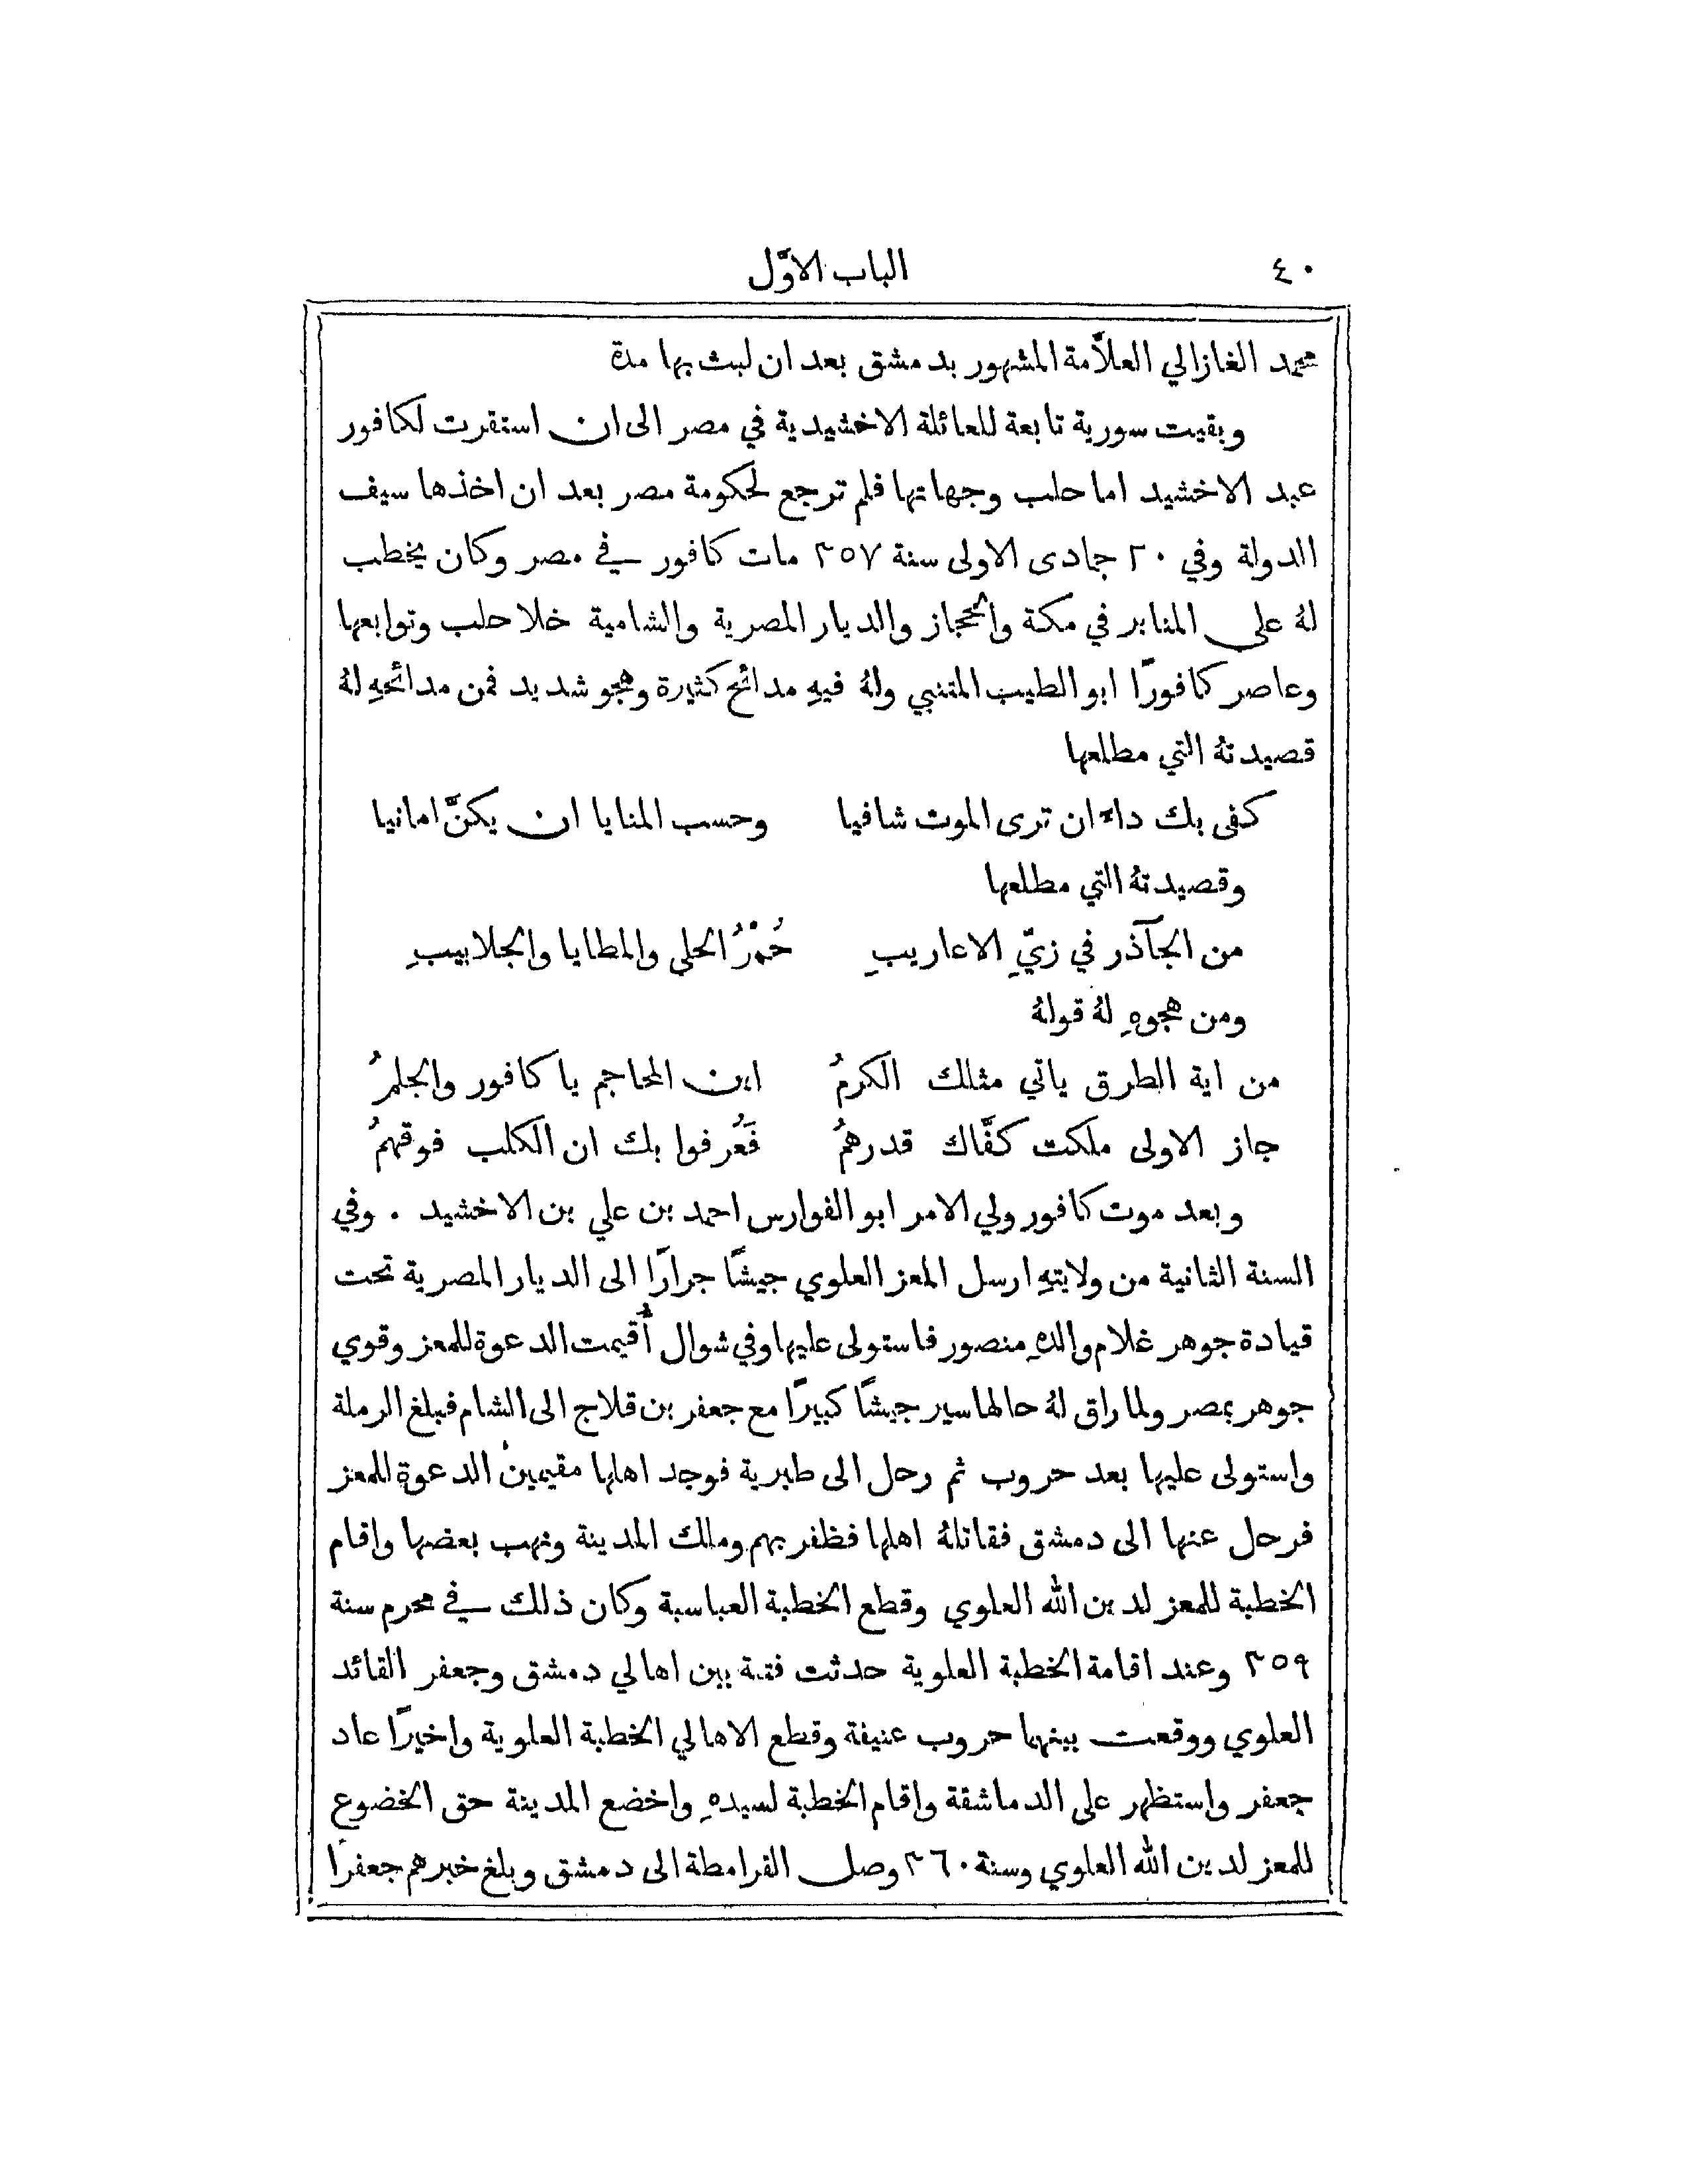 ٤٠
الباب الاوَّل
محمد الغازالي العلاَّمة المشهور بدمشق بعد ان لبث بها مدة
وبقيت سورية تابعة للعائلة الاخشيدية في مصر الى ان استقرت لكافور
عبد الاخشيد اما حلب وجهاتها فلم ترجع لحكومة مصر بعد ان اخذها سيف
الدولة وفي ٢٠ جمادى الاولى سنة ٣٥٧ مات كافور في مصر وكان يخطب
لهُ على المنابر في مكة والحجاز والديار المصرية والشامية خلا حلب وتوابعها
وعاصر كافورًا ابو الطيب المتنبي ولهُ فيهِ مدائح كثيرة وهجو شديد فمن مدائحهِ لهُ
قصيدتهُ التي مطلعها
كفى بك داءً ان ترى الموت شافيا وحسب المنايا ان يكنَّ امانيا
وقصيدتهُ التي مطلعها
من الجآذر في زيِّ الاعاريبِ حُمْرُ الحلي والمطايا والجلابيبِ
ومن هجوهِ لهُ قولهُ
من اية الطرق ياتي مثلك الكرمُ اين المحاجم يا كافور والجلمُ
جاز الاولى ملكت كفَّاك قدرهمُ فَعُرفوا بك ان الكلب فوقهمُ
وبعد موت كافور ولي الامر ابو الفوارس احمد بن علي بن الاخشيد . وفي
السنة الثانية من ولايتهِ ارسل المعز العلوي جيشًا جرارًا الى الديار المصرية تحت
قيادة جوهر غلام والدهِ منصور فاستولى عليها وفي شوال أُقيمت الدعوة للمعز وقوي
جوهر بمصر ولما راق لهُ حالها سير جيشًا كبيرًا مع جعفر بن قلاج الى الشام فبلغ الرملة
واستولى عليها بعد حروب ثم رحل الى طبرية فوجد اهلها مقيمين الدعوة للمعز
فرحل عنها الى دمشق فقاتلهُ اهلها فظفر بهم وملك المدينة ونهب بعضها واقام
الخطبة للمعز لدين الله العلوي وقطع الخطبة العباسية وكان ذلك في محرم سنة
٣٥٩ وعند اقامة الخطبة العلوية حدثت فتنة بين اهالي دمشق وجعفر القائد
العلوي ووقعت بينهما حروب عنيفة وقطع الاهالي الخطبة العلوية واخيرًا عاد
جعفر واستظهر على الدماشقة واقام الخطبة لسيدهِ واخضع المدينة حق الخضوع
للمعز لدين الله العلوي وسنة ٣٦٠ وصل القرامطة الى دمشق وبلغ خبرهم جعفرًا